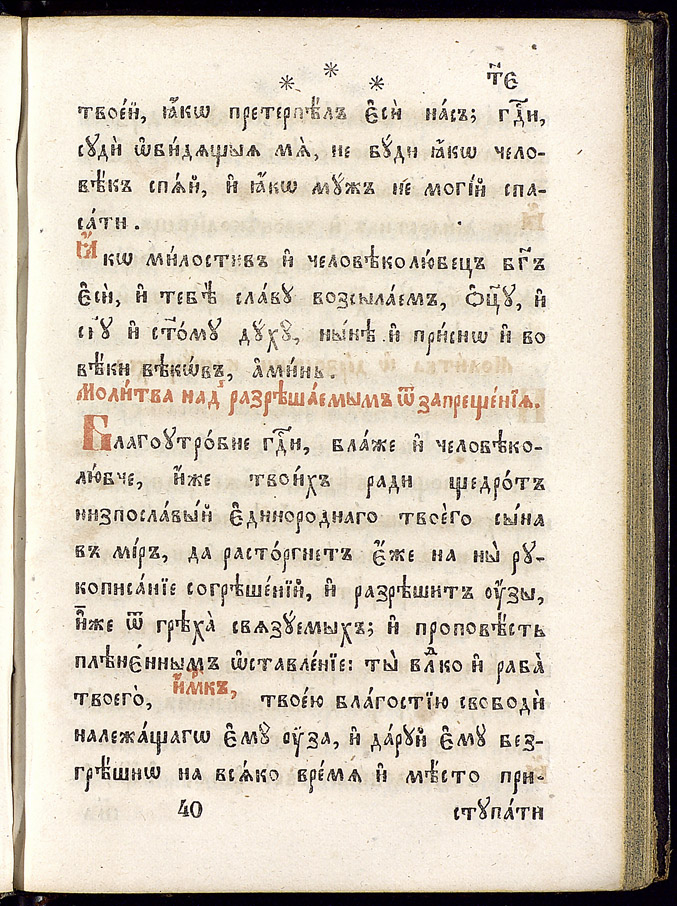 * * * т҃є
твоеѝ, ꙗ҆́кѡ претерпѣ́лъ є҆сѝ на́съ; гдⷭ҇и,
сꙋдѝ ѡ҆би́дѧщыѧ мѧ̀, не бꙋ́ди ꙗ҆́кѡ чело-
вѣ́къ спѧ́й, и҆ ꙗ҆́кѡ мꙋ́жъ не могі́й спа-
са́ти.
Ꙗ҆́кѡ ми́лостивъ и҆ человѣколю́бецъ бг҃ъ
є҆сѝ, и҆ тебѣ̀ сла́вꙋ возсыла́емъ, ѻ҆ц҃ꙋ̀, и҆
сн҃ꙋ и҆ ст҃о́мꙋ дꙋ́хꙋ, ны́нѣ и҆ при́снѡ и҆ во
вѣ́ки вѣкѡ́въ, а҆ми́нь.
Моли́тва над̾ разрѣша́емымъ ѿ запреще́нїѧ.
Благоꙋтро́бне гдⷭ҇и, бла́же и҆ человѣко-
лю́бче, и҆́же твои́хъ ради щедро́тъ
низпосла́вый є҆диноро́днаго твоего̀ сы́на
въ мі́ръ, да расто́ргнетъ є҆́же на ны̀ рꙋ-
кописа́нїе согрѣше́нїй, и҆ разрѣши́тъ ᲂу҆́зы,
и҆̀же ѿ грѣха̀ свѧзꙋ́емыхъ; и҆ проповѣ́сть
плѣне́ннымъ ѡ҆ставле́нїе: ты̀ влⷣко и҆ раба̀
твоего̀, и҆́м̾къ, твое́ю бла́гостїю свободѝ
належа́щагѡ є҆мꙋ̀ ᲂу҆́за, и҆ да́рꙋй є҆мꙋ̀ без-
грѣ́шнѡ на всѧ́ко вре́мѧ и҆ мѣ́сто при-
40 стꙋпа́ти